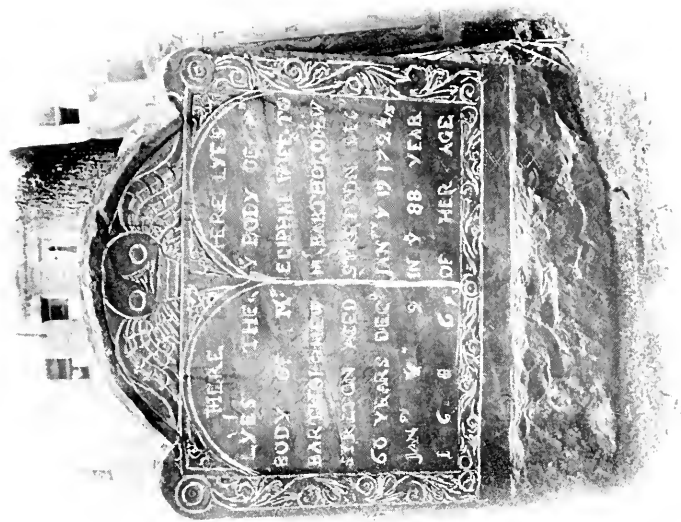 HERE
LYES THE
BODY OF Mr
BARTHOLOMEW
STRETON AGED
60 YEARS DECD
JANRY Ye 9
1 6 8 6/7
HERE LYES
Ye BODY OF
ELIPHAL WIFE TO
Mr BARTHOLOMEW
DECd
JANry Ye 19 1724/5
IN Ye 88 YEAR
OF HER AGE